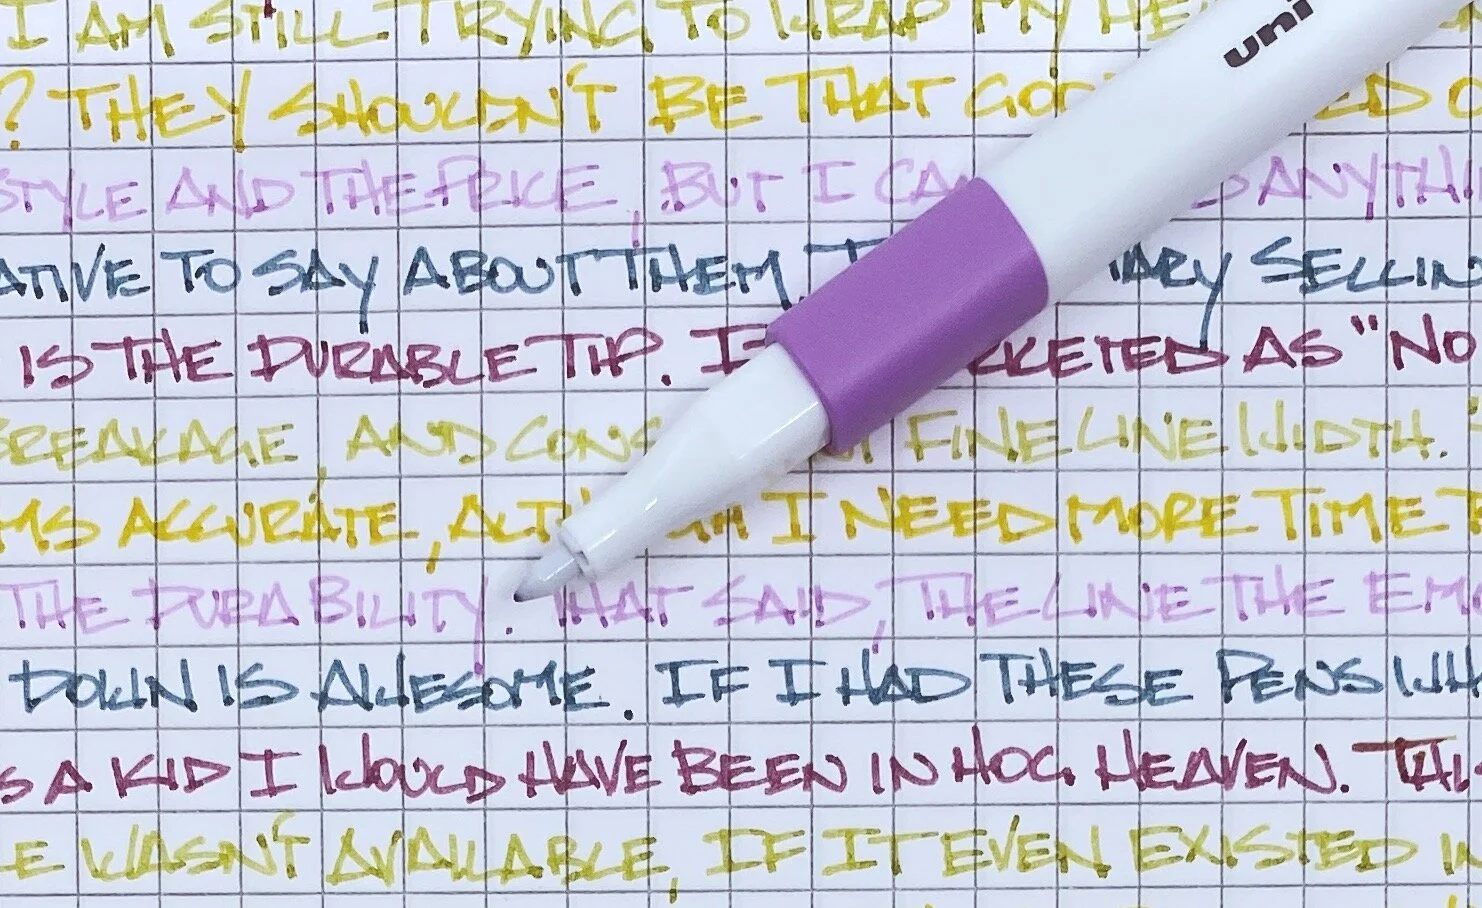 I AM STILL TRYING TO WRAP MY HE
uni
? THEY SHOULDN'T BE THAT GOO ED O
STYLE AND THE PRICE, BUT I CAN ANYTHI
ATIVE TO SAY ABOUT THEM. MARY SELLIN
IS THE DURABLE TIP. I RKETED AS "NO
BREAKAGE, AND CONS T FINE LINE WIDTH."
MS ACCURATE, ALTHOUGH I NEED MORE TIME T
THE DURABILITY. THAT SAID, THE LINE THE EM
DOWN IS AWESOME. IF I HAD THESE PENS WH
S A KID I WOULD HAVE BEEN IN HOG HEAVEN. THI
LE WASN'T AVAILABLE, IF IT EVEN EXISTED